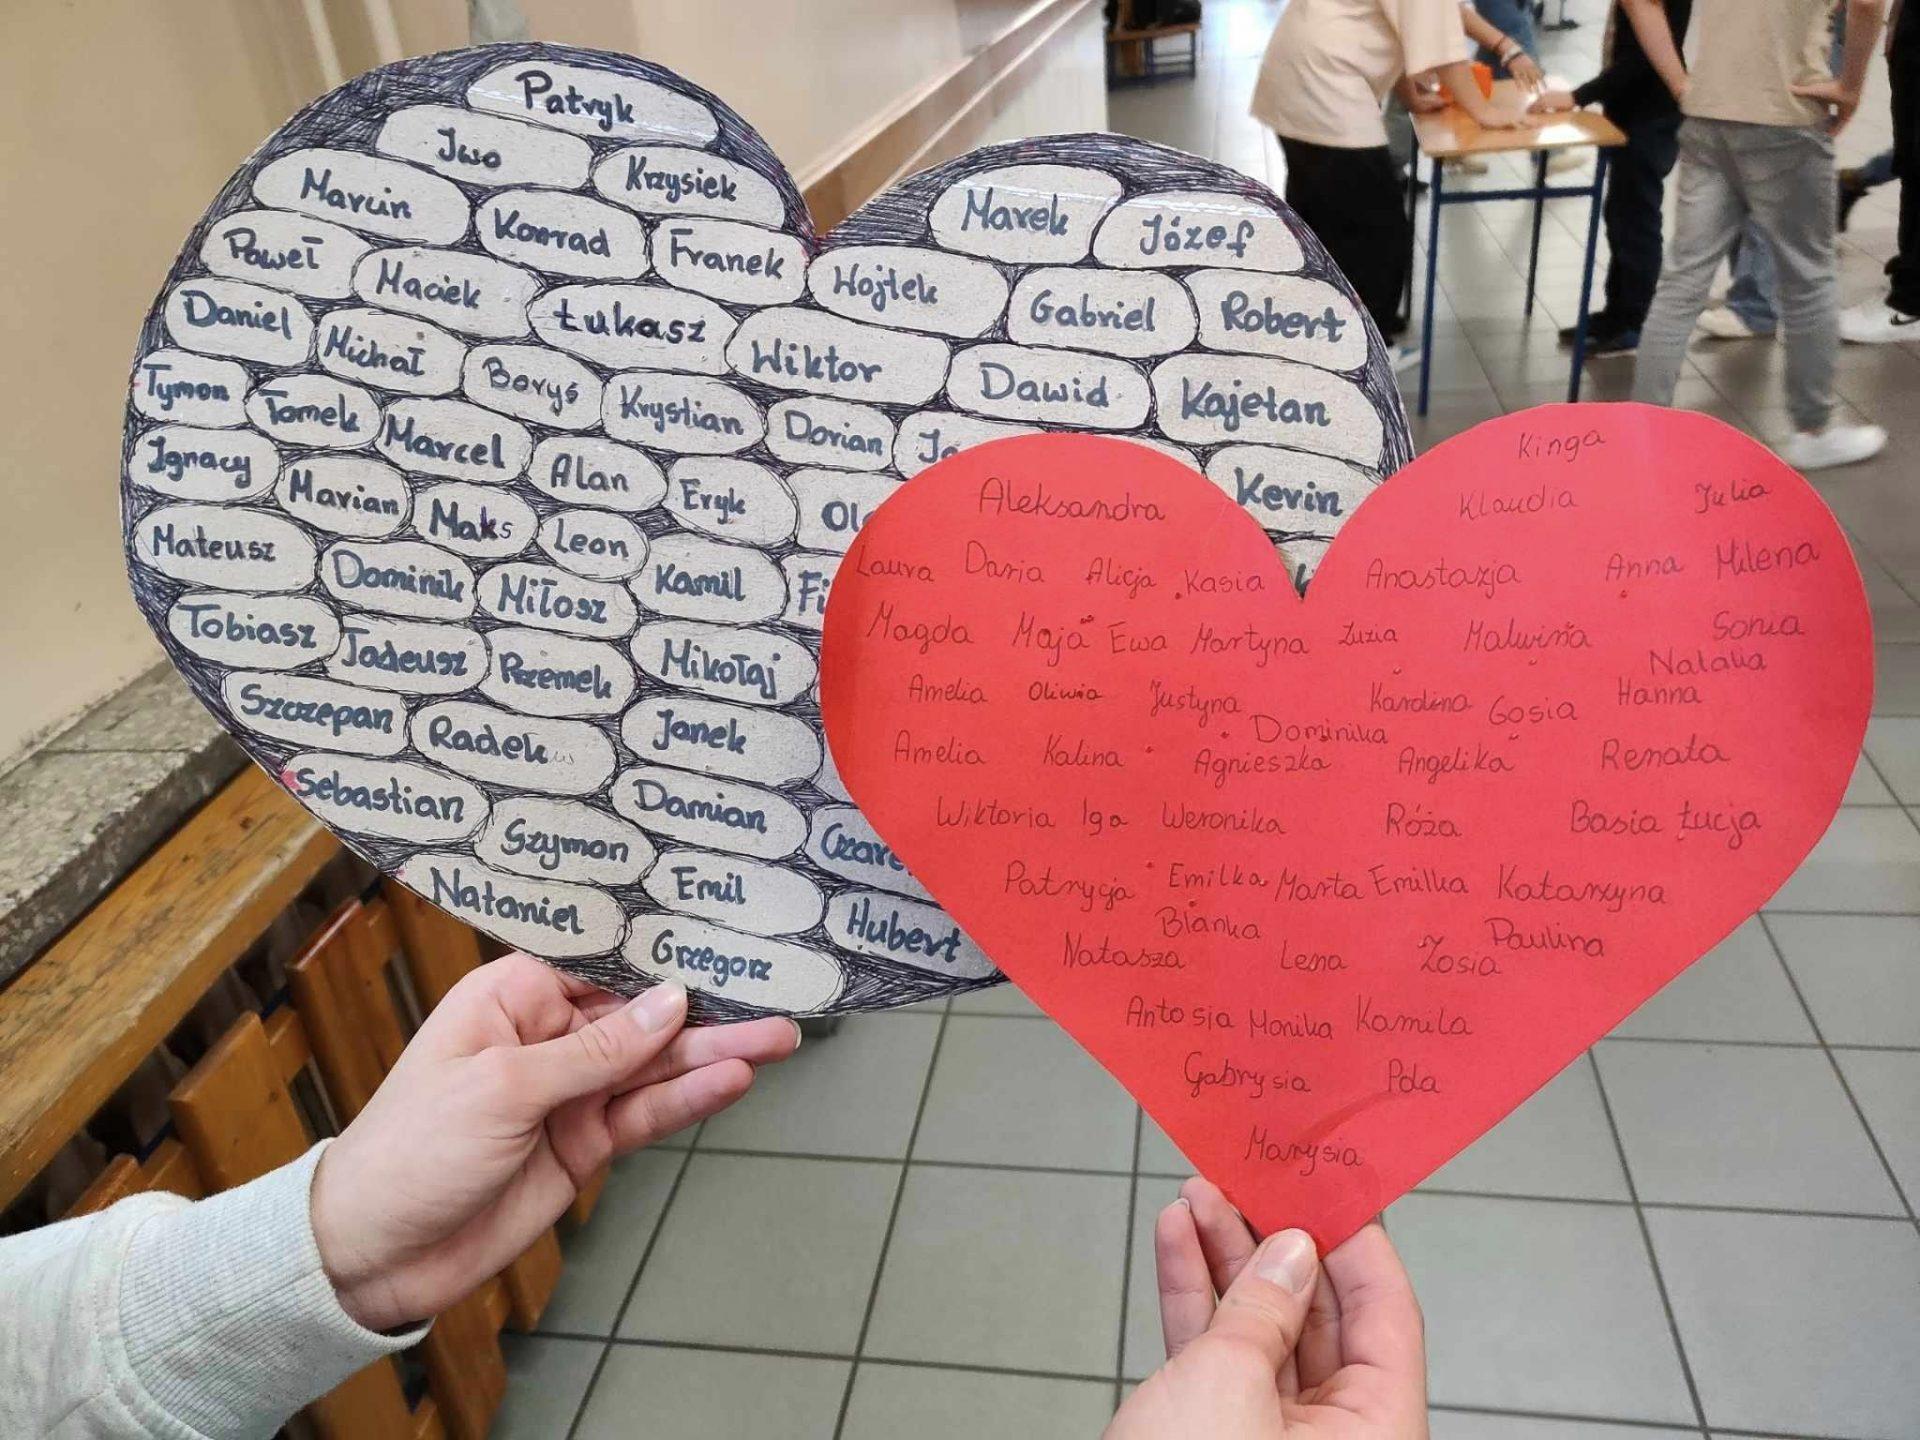 Patryk
Iwo Krzysiek
Marcin Konrad Franek
Marek Józef
Paweł Maciek Łukasz Wojtek Gabriel Robert
Daniel Michał Borys Wiktor Dawid Kajetan
Tymon Tomek Marcel Krystian Dorian
Ignacy Marian Maks Alan Eryk Kevin
Mateusz Dominik Miłosz Leon Kamil
Tobiasz Tadeusz Przemek Mikołaj
Szczepan Radek Janek
Sebastian Szymon Damian
Nataniel Emil Hubert
Grzegorz
Kinga
Aleksandra Klaudia Julia
Laura Daria Alicja Kasia Anastazja Anna Milena
Magda Maja Ewa Martyna Zuzia Malwina Sonia
Natalia
Amelia Oliwia Justyna Karolina Gosia Hanna
Dominika
Amelia Kalina Agnieszka Angelika Renata
Wiktoria Iga Weronika Róża Basia Łucja
Patrycja Emilka Marta Emilka Katarzyna
Blanka Paulina
Natasza Lena Zosia
Antosia Monika Kamila
Gabrysia Pola
Marysia